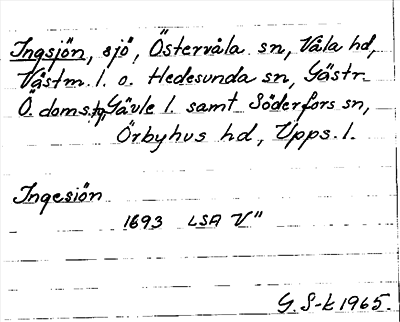 Ingsjön, sjö, Östervåla sn, Våla hd,
Västm. l. o. Hedesunda sn, Gästr.
Ö. doms.g, Gävle l. samt Söderfors sn,
Örbyhus hd, Upps. l.
Ingesiön
1693 LSA V"
G. S-k 1965.